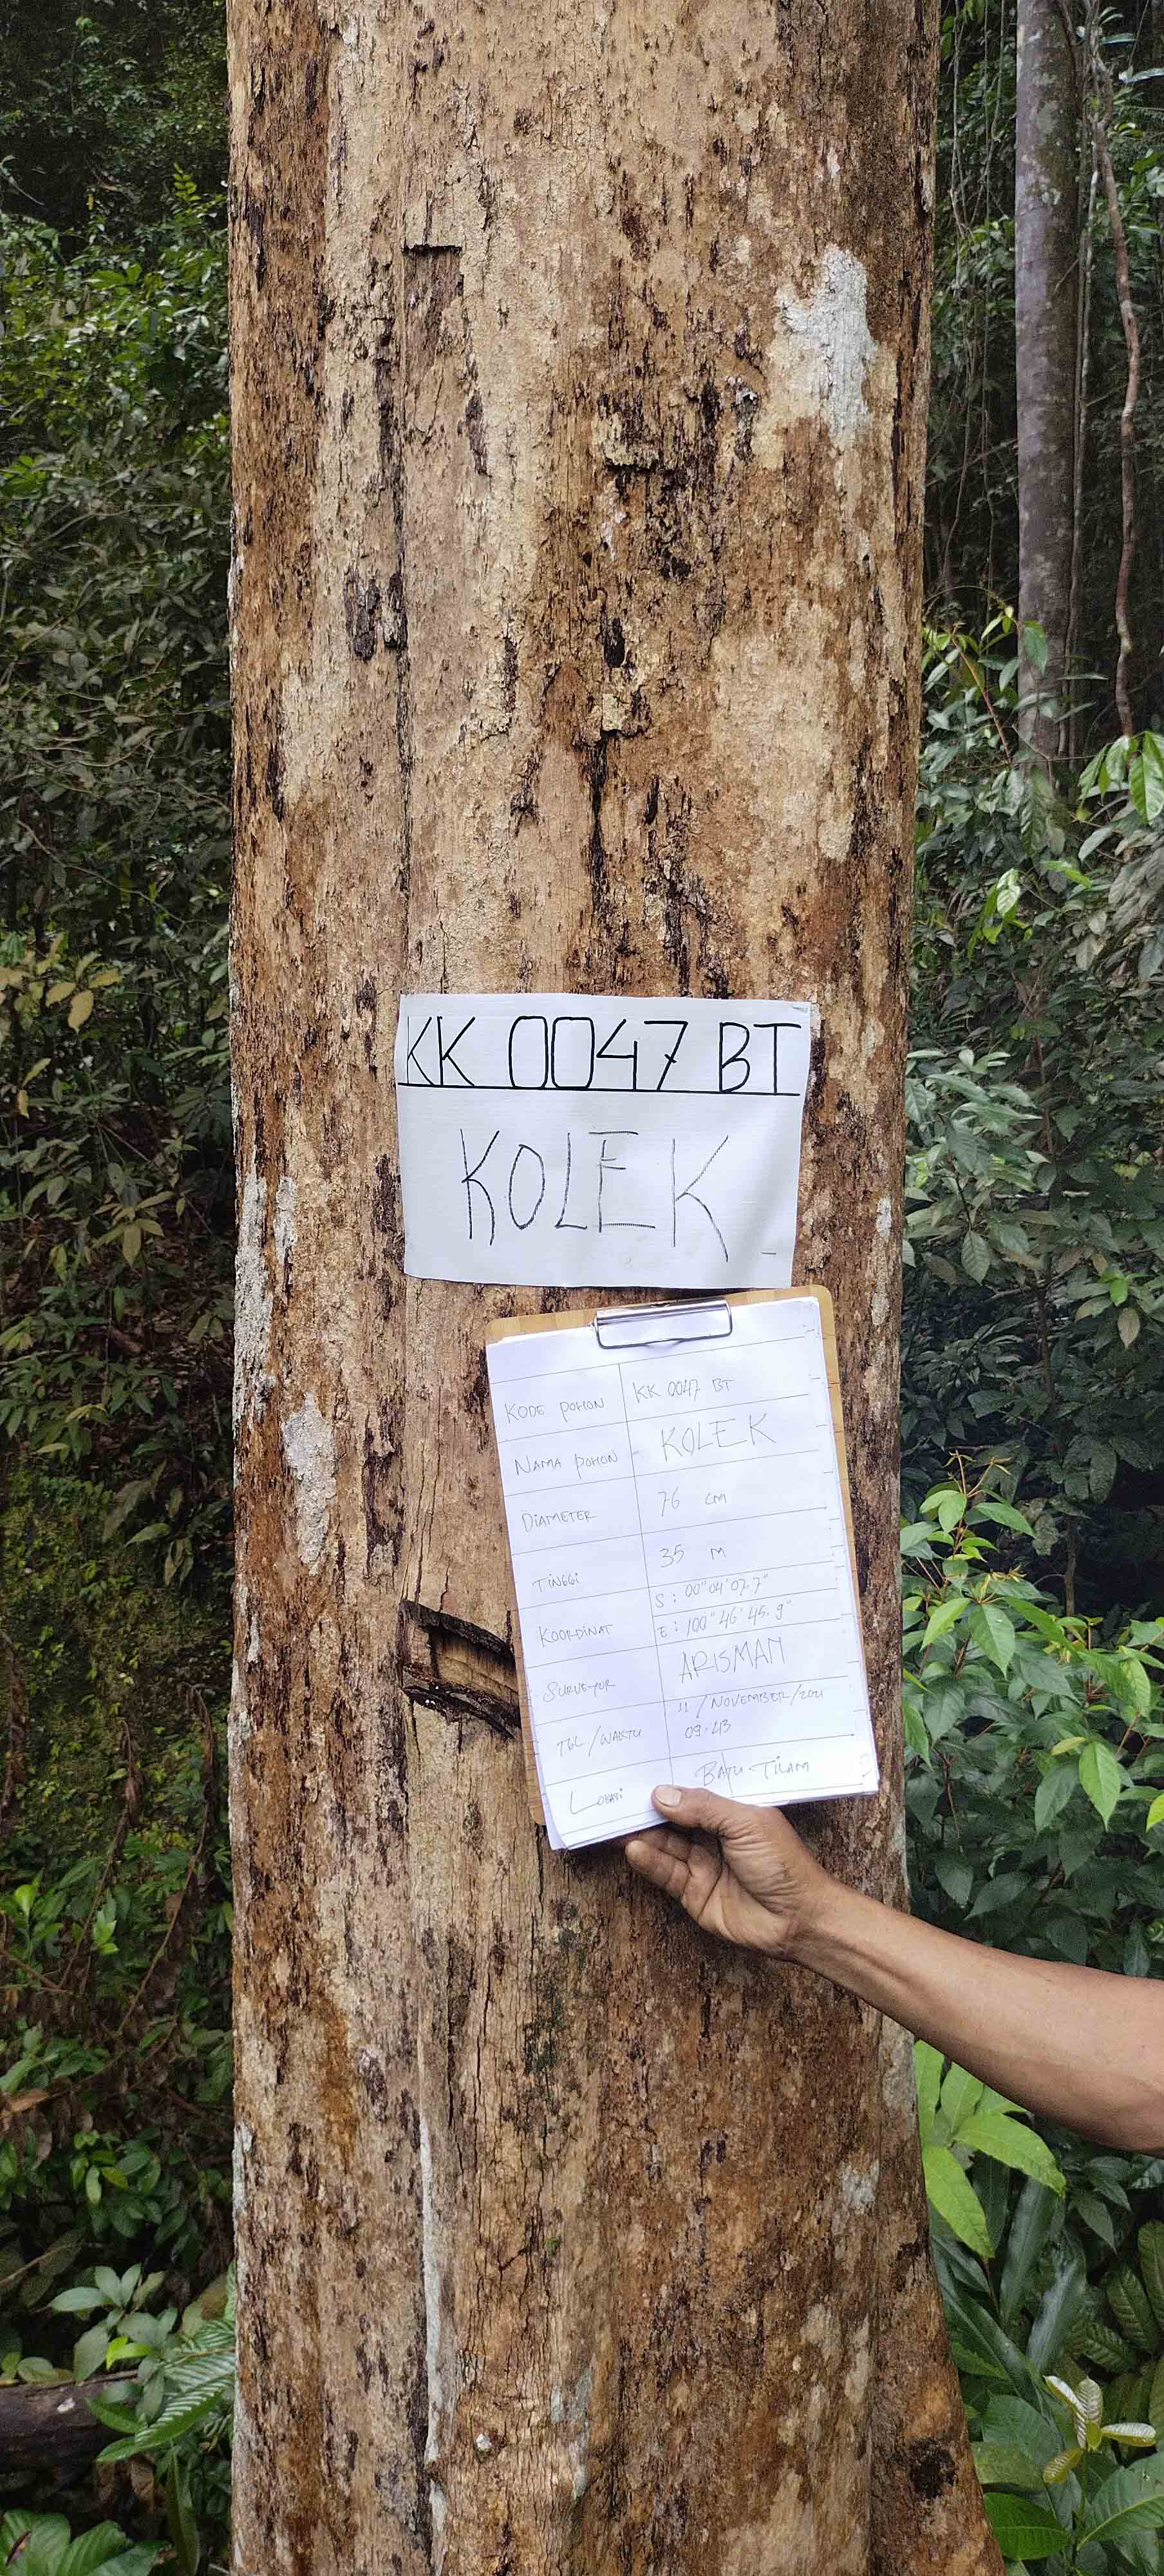 KK 0047 BT
KOLEK
KODE POHON KK 0047 BT
NAMA POHON KOLEK
DIAMETER 76 cm
TINGGI 35 M
KOORDINAT S : 00°04'07.7"
E : 100°46'45.9"
SURVEYOR ARISMAN
TGL/WAKTU 11/NOVEMBER/2021
09.43
LOKASI BATU TILAM